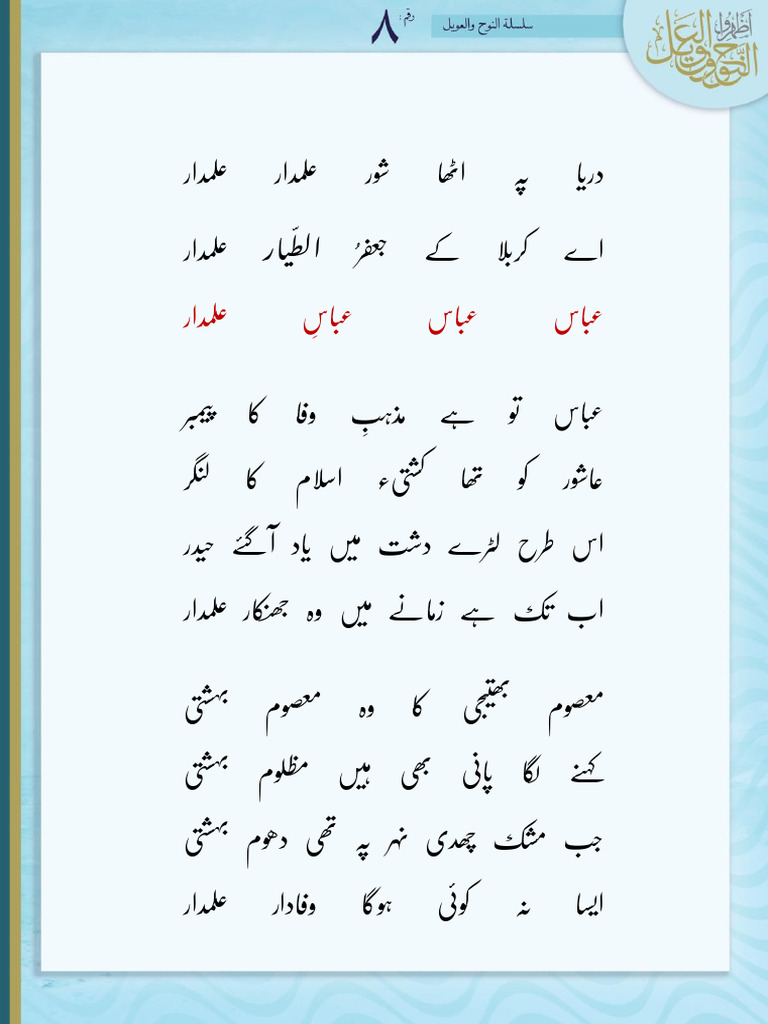 سلسلة النوح والعويل
رقم: ٨
اظهروا النوح والعويل
دریا پہ اٹھا شور علمدار علمدار
اے کربلا کے جعفرُ الطّیار علمدار
عباس عباس عباسِ علمدار
عباس تو ہے مذہبِ وفا کا پیمبر
عاشور کو تھا کشتیء اسلام کا لنگر
اس طرح لڑے دشت میں یاد آگئے حیدر
اب تک ہے زمانے میں وہ جھنکار علمدار
معصوم بھتیجی کا وہ معصوم بہشتی
کہنے لگا پانی بھی ہیں مظلوم بہشتی
جب مشک چھدی نہر پہ تھی دھوم بہشتی
ایسا نہ کوئی ہوگا وفادار علمدار